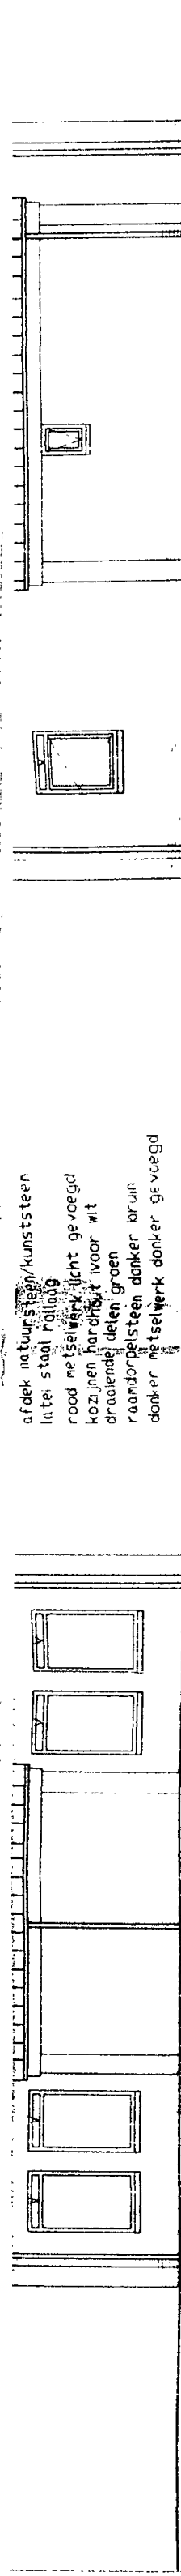 afdek natuursteen/kunststeen
latei staal rollaag
rood metselwerk licht gevoegd
kozijnen hardhout ivoor wit
draaiende delen groen
raamdorpelsteen donker bruin
donker metselwerk donker gevoegd